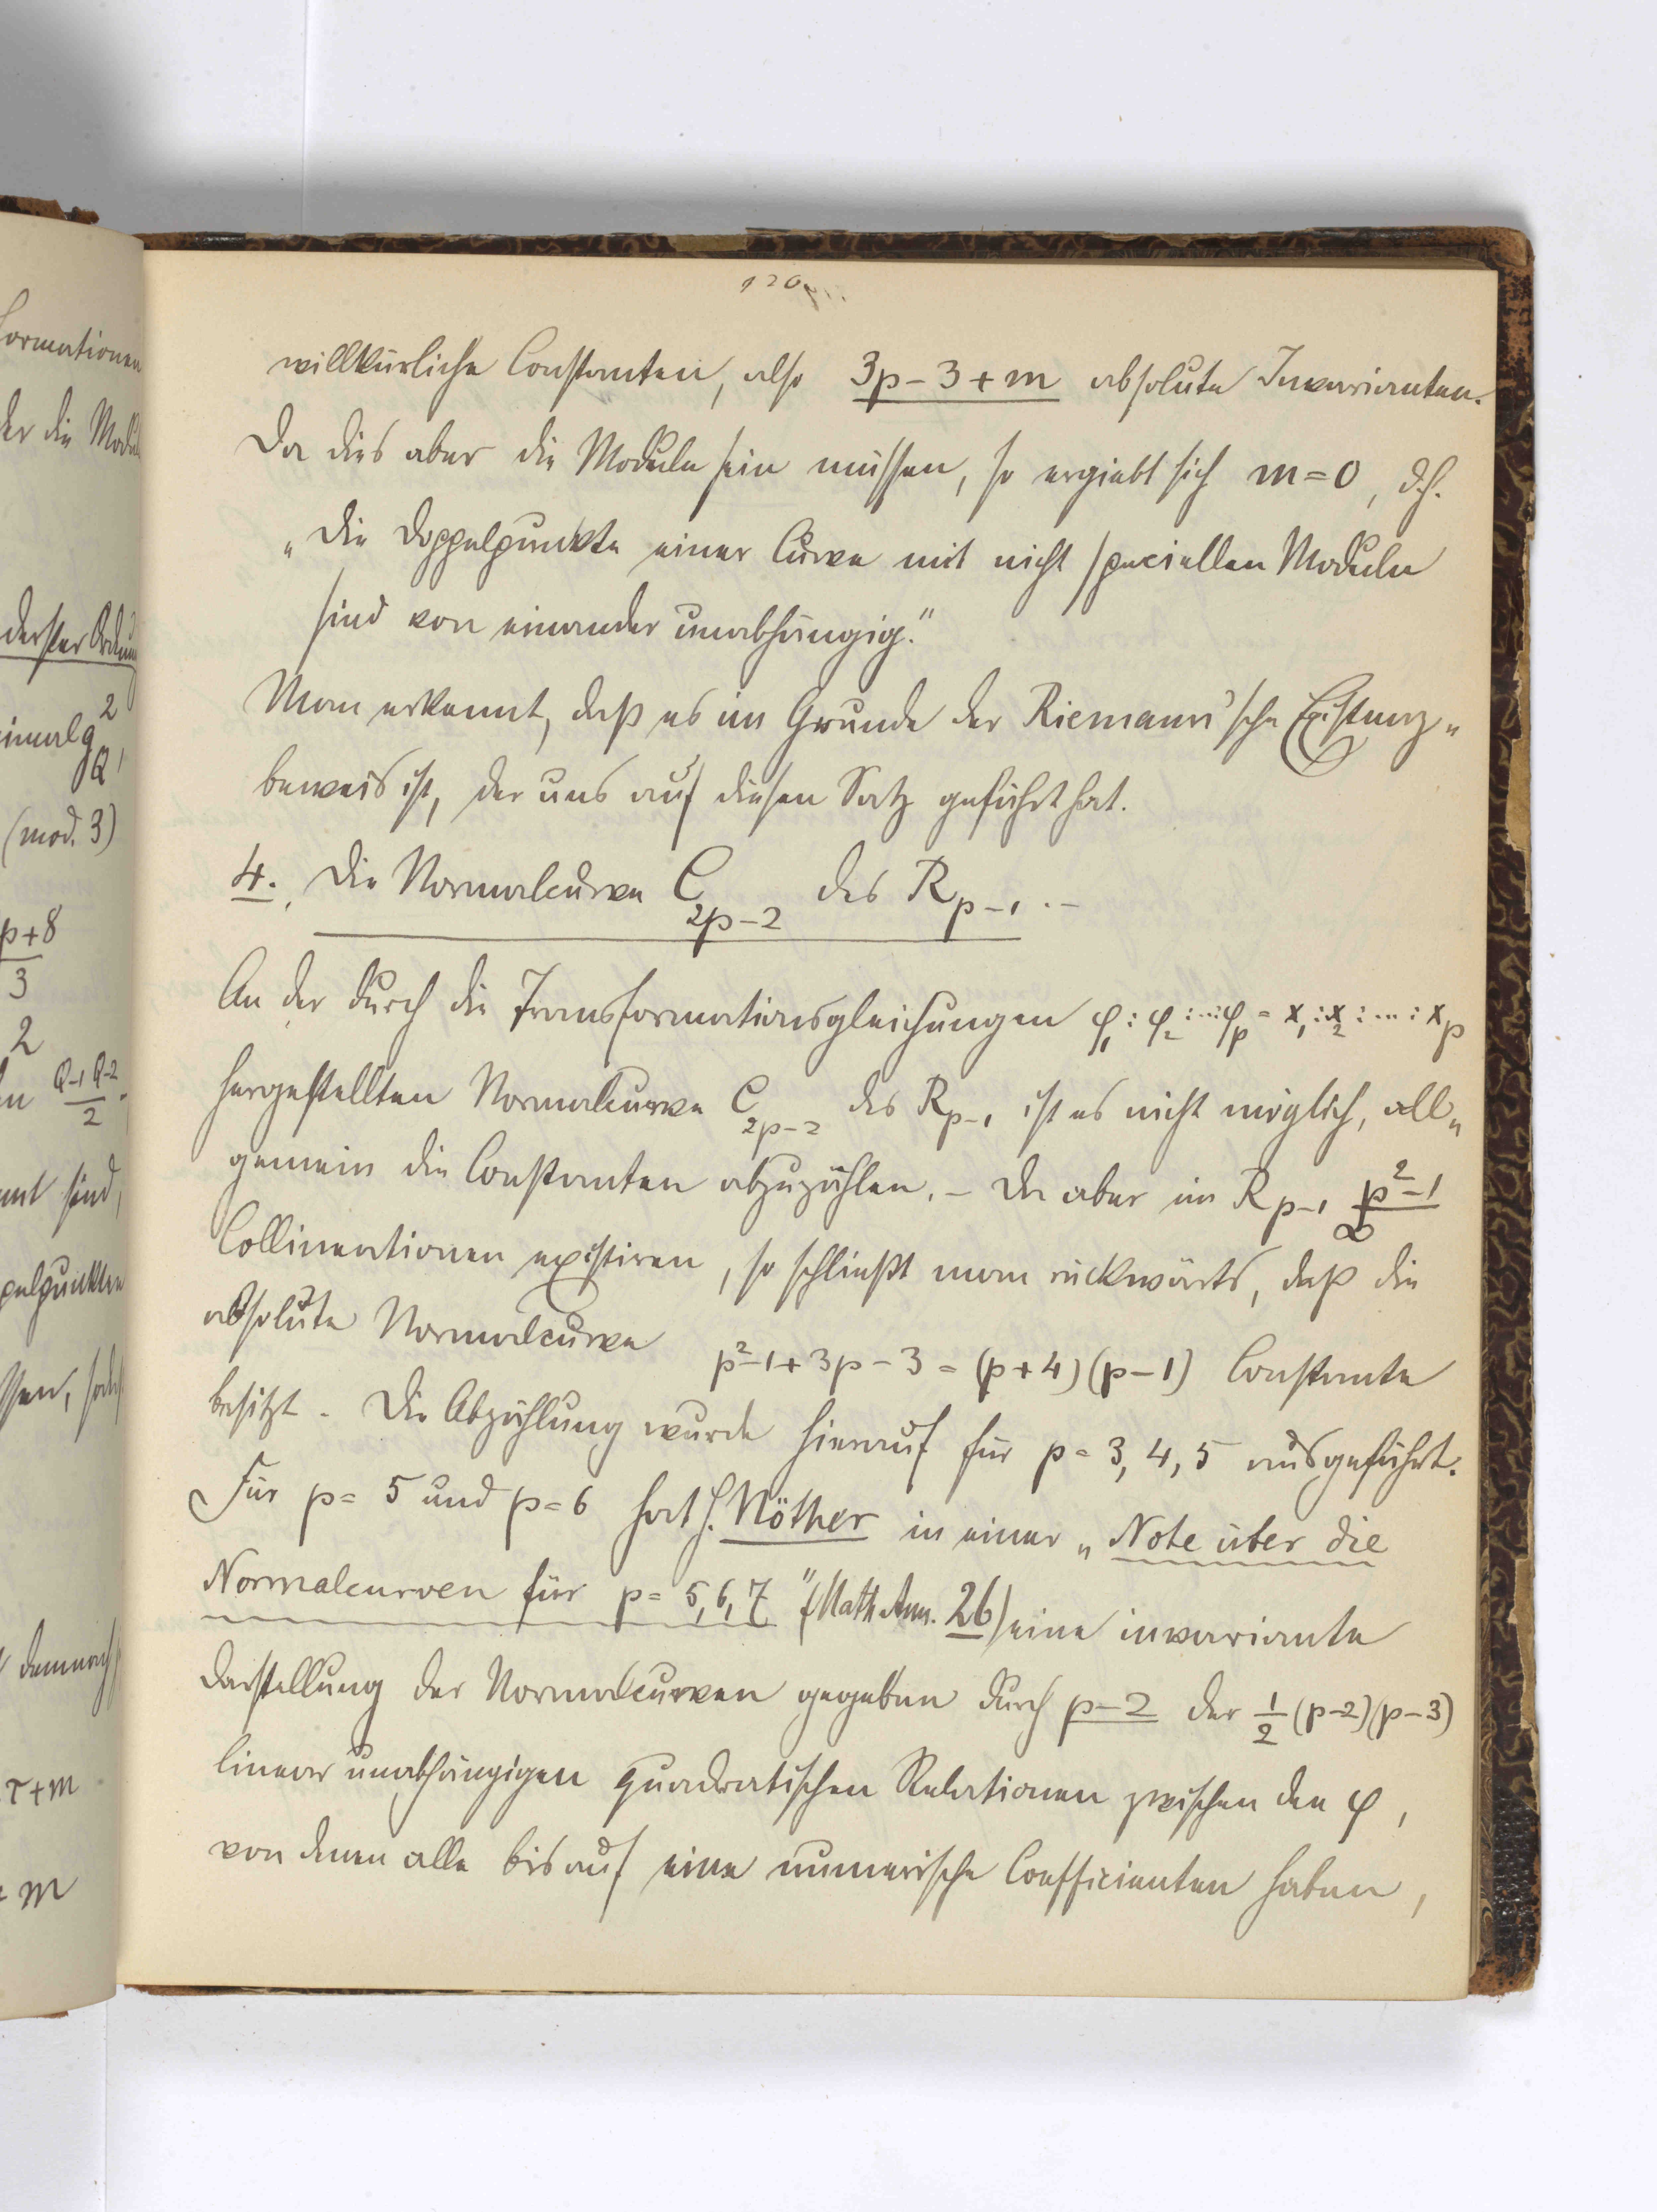 120
willkürliche Constanten, also 3p-3+m absolute Invarianten.
Da dies aber die Moduln sein müssen, so ergiebt sich m=0, d.h.
„Die Doppelpunkte einer Curve mit nicht speciellen Moduln
sind von einander unabhängig.“
Man erkennt, daß es im Grunde der Riemann'sche Existenz-
beweis ist, der uns auf diesen Satz geführt hat.
4. Die Normalcurve C_{2p-2} des R_{p-1}.-
An der durch die Transformationsgleichungen φ_1:φ_2:...:φ_p = x_1:x_2:...:x_p
hergestellten Normalcurve C_{2p-2} des R_{p-1} ist es nicht möglich, all-
gemein die Constanten abzuzählen. - Da aber im R_{p-1} ∞^{p²-1}
Collineationen existiren, so schließt man rückwärts, daß die
absolute Normalcurve p²-1+3p-3 = (p+4)(p-1) Constante
besitzt. Die Abzählung wurde hierauf für p=3,4,5 ausgeführt.
Für p=5 und p=6 hat H. Nöther in einer „Note über die
Normalcurven für p=5,6,7“ (Math. Ann. 26) eine invariante
Darstellung der Normalcurven gegeben durch p-2 der 1/2 (p-2)(p-3)
linear unabhängigen quadratischen Relationen zwischen den φ,
von denen alle bis auf eine numerische Coefficienten haben,
formationen
der die Moduln
2
(mod. 3)
p+8
3
2
Q-1 Q-2
2
sind,
demnach
τ+m
+m